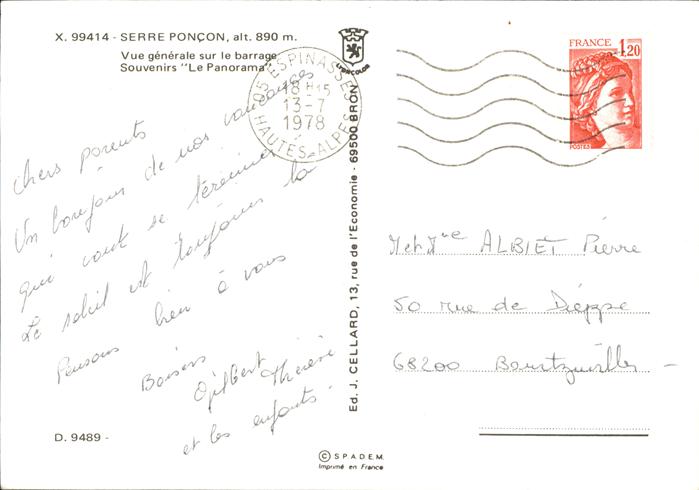 X. 99414 - SERRE PONÇON, alt. 890 m.
Vue générale sur le barrage
Souvenirs "Le Panorama"
LYONCOLOR
05 ESPINASSES
18 H 15
13-7
1978
HAUTES-ALPES
FRANCE
1,20
POSTES
Chers parents
Un bonjour de nos vacances
qui vont se terminer
Le soleil est toujours là
Pensons bien à vous
Baisers
Gilbert Thérèse
et les enfants -
Ed. J. CELLARD, 13, rue de l'Economie - 69500 BRON
M et Mme ALBIET Pierre
50 rue de Dieppe
68200 Bourtzwiller -
D. 9489 -
© SPADEM
Imprimé en France